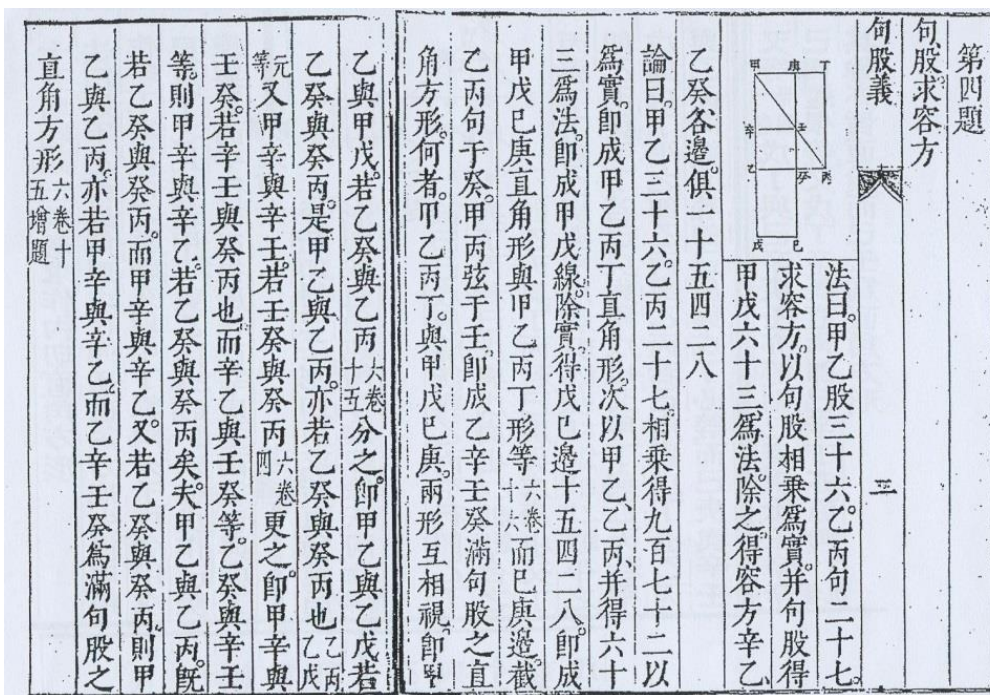 第四題
句股求容方
句股義
三
法曰甲乙股三十六乙丙句二十七
求容方以句股相乘爲實并句股得
甲戊六十三爲法除之得容方辛乙
甲 庚 丁
辛 壬
乙 癸 丙
戊 巳
乙癸各邊俱一十五四二八
論曰甲乙三十六乙丙二十七相乘得九百七十二以
爲實即成甲乙丙丁直角形次以甲乙乙丙并得六十
三爲法即成甲戊線除實得戊巳邊十五四二八即成
甲戊巳庚直角形與甲乙丙丁形等六卷十六而巳庚邊截
乙丙句于癸甲丙弦于壬即成乙辛壬癸滿句股之直
角方形何者甲乙丙丁與甲戊巳庚兩形互相視即甲
乙與甲戊若乙癸與乙丙六卷十五分之即甲乙與乙戊若
乙癸與癸丙是甲乙與乙丙亦若乙癸與癸丙也乙丙乙戊
元等又甲辛與辛壬若壬癸與癸丙六卷四更之即甲辛與
壬癸若辛壬與癸丙也而辛乙與壬癸等乙癸與辛壬
等則甲辛與辛乙若乙癸與癸丙矣夫甲乙與乙丙既
若乙癸與癸丙而甲辛與辛乙又若乙癸與癸丙則甲
乙與乙丙亦若甲辛與辛乙而乙辛壬癸爲滿句股之
直角方形六卷十五增題